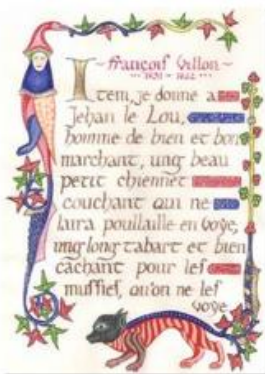 ~ François Villon ~
Item, je donne a
Jehan le Lou,
homme de bien et bon
marchant, ung beau
petit chiennet
couchant qui ne
laira poullaille en voye,
ung long tabart et bien
cachant pour les
mussies, qu'on ne les
voye